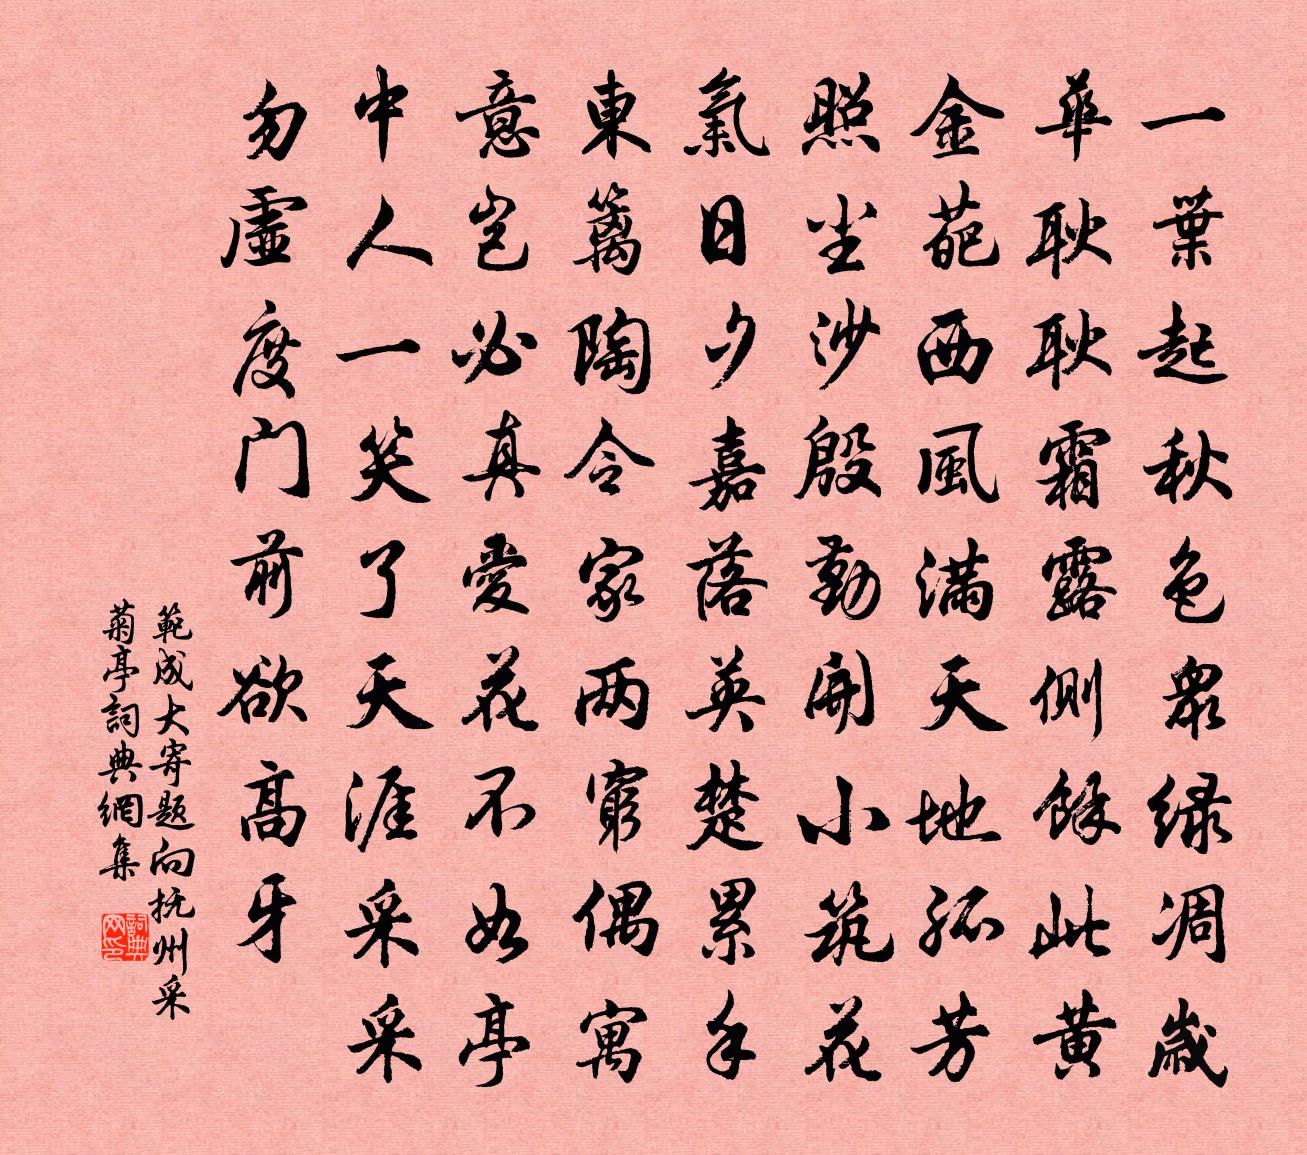 一葉起秋色衆緑凋歳
華耿耿霜露側餘此黄
金葩西風滿天地孤芳
照塵沙殷勤開小筑花
氣日夕嘉落英楚累手
東篱陶令家两窮偶寓
意豈必真愛花不如亭
中人一笑了天涯采采
勿虛度门前欲高牙
範成大寄题向抚州采
菊亭詞典網集
詞典网